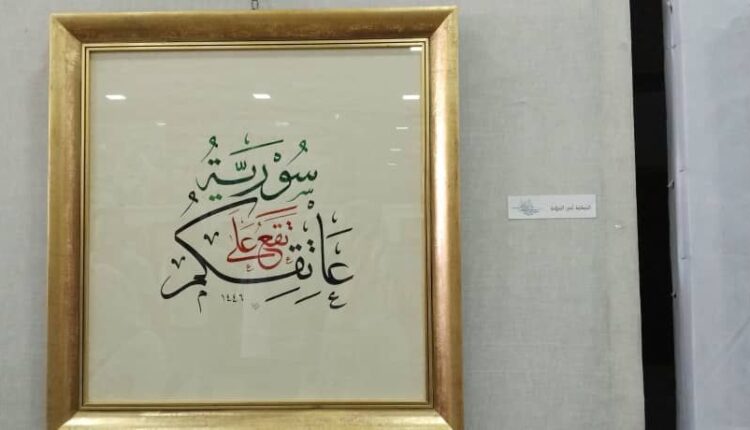 سُوْرِيَّةُ
تَقَعُ عَلَى
عَاتِقِكُمْ
١٤٤٦